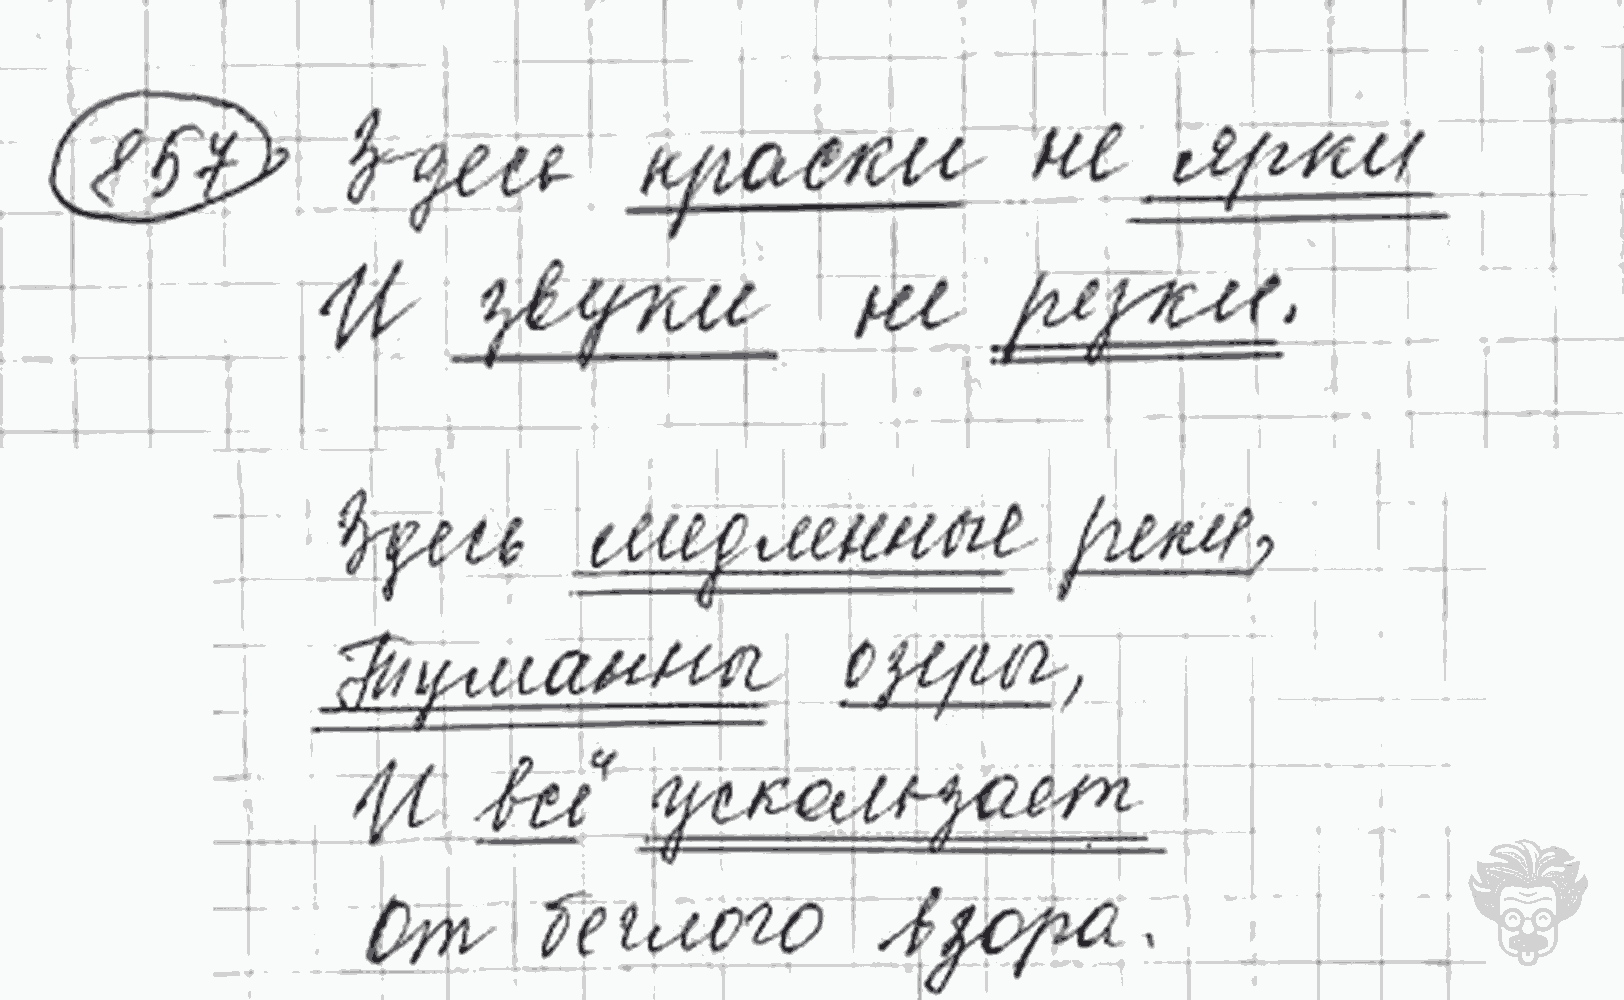 857, Здесь краски не ярки
И звуки не резки.
Здесь медленные реки,
Туманны озёры,
И всё ускользает
От беглого взора.